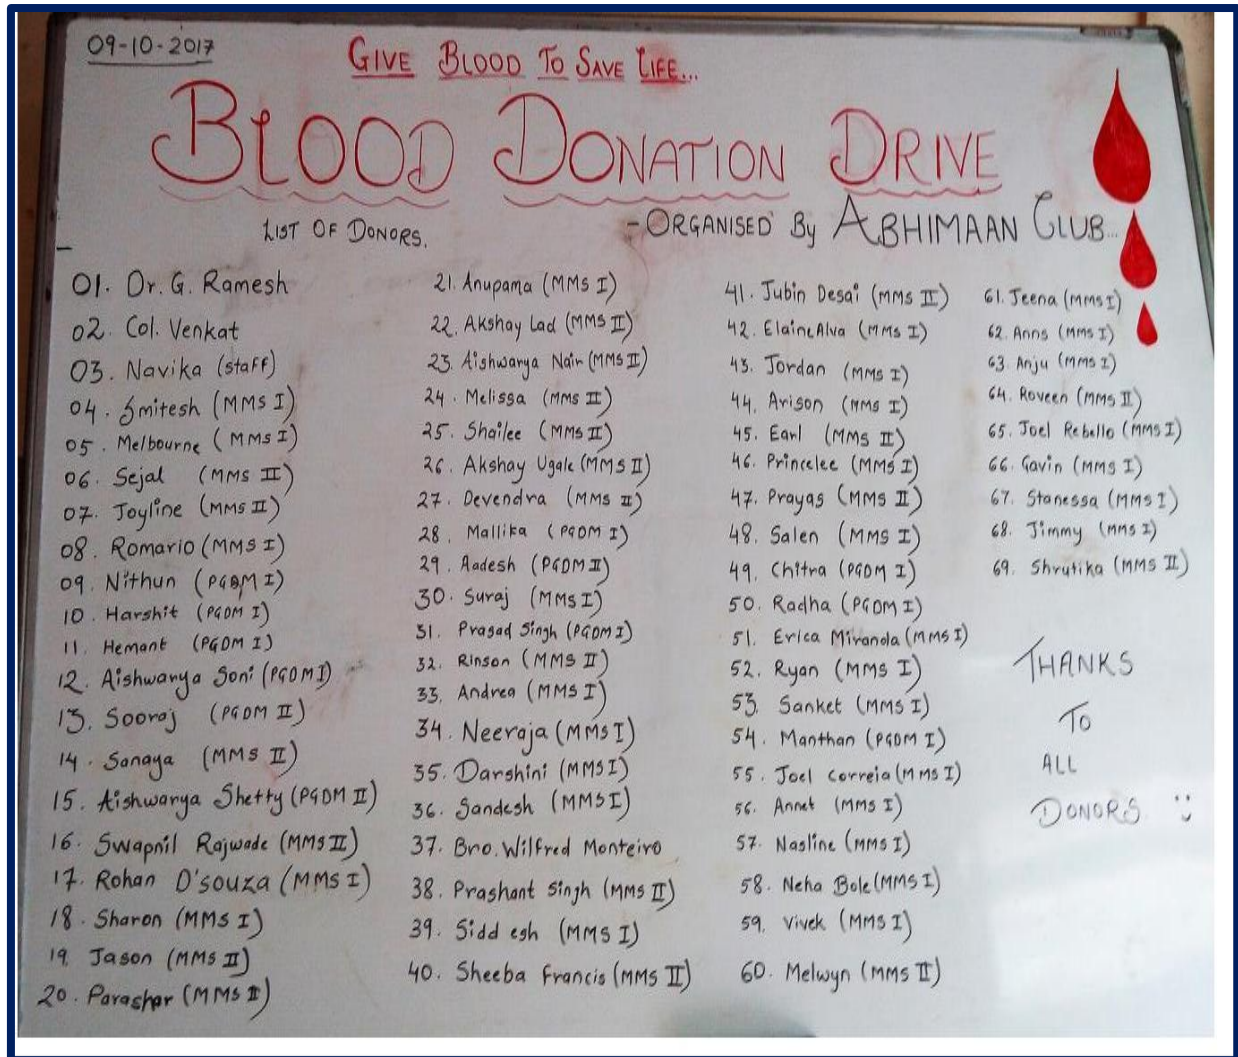 09-10-2017
GIVE BLOOD TO SAVE LIFE...
BLOOD DONATION DRIVE
LIST OF DONORS.
-ORGANISED By ABHIMAAN CLUB...
01. Dr. G. Ramesh
02. Col. Venkat
03. Navika (staff)
04. Smitesh (MMS I)
05. Melbourne (MMS I)
06. Sejal (MMS II)
07. Joyline (MMS II)
08. Romario (MMS I)
09. Nithun (PGDM I)
10. Harshit (PGDM I)
11. Hemant (PGDM I)
12. Aishwarya Soni (PGDM I)
13. Sooraj (PGDM II)
14. Sanaya (MMS II)
15. Aishwarya Shetty (PGDM II)
16. Swapnil Rajwade (MMS II)
17. Rohan D'souza (MMS I)
18. Sharon (MMS I)
19. Jason (MMS II)
20. Parashar (MMS II)
21. Anupama (MMS I)
22. Akshay Lad (MMS II)
23. Aishwarya Nair (MMS II)
24. Melissa (MMS II)
25. Shailee (MMS II)
26. Akshay Ugale (MMS II)
27. Devendra (MMS II)
28. Mallika (PGDM I)
29. Aadesh (PGDM II)
30. Suraj (MMS I)
31. Prasad Singh (PGDM I)
32. Rinson (MMS II)
33. Andrea (MMS I)
34. Neeraja (MMS I)
35. Darshini (MMS I)
36. Sandesh (MMS I)
37. Bro. Wilfred Monteiro
38. Prashant Singh (MMS II)
39. Siddesh (MMS I)
40. Sheeba Francis (MMS II)
41. Jubin Desai (MMS II)
42. Elaine Alva (MMS I)
43. Jordan (MMS I)
44. Arison (MMS I)
45. Earl (MMS II)
46. Princelee (MMS I)
47. Prayas (MMS II)
48. Salen (MMS I)
49. Chitra (PGDM I)
50. Radha (PGDM I)
51. Erica Miranda (MMS I)
52. Ryan (MMS I)
53. Sanket (MMS I)
54. Manthan (PGDM I)
55. Joel Correia (MMS I)
56. Annet (MMS I)
57. Nasline (MMS I)
58. Neha Bole (MMS I)
59. Vivek (MMS I)
60. Melwyn (MMS II)
61. Jeena (MMS I)
62. Anns (MMS I)
63. Anju (MMS I)
64. Roveen (MMS II)
65. Joel Rebello (MMS I)
66. Gavin (MMS I)
67. Stanessa (MMS I)
68. Jimmy (MMS I)
69. Shrutika (MMS II)
THANKS
TO
ALL
DONORS. :)